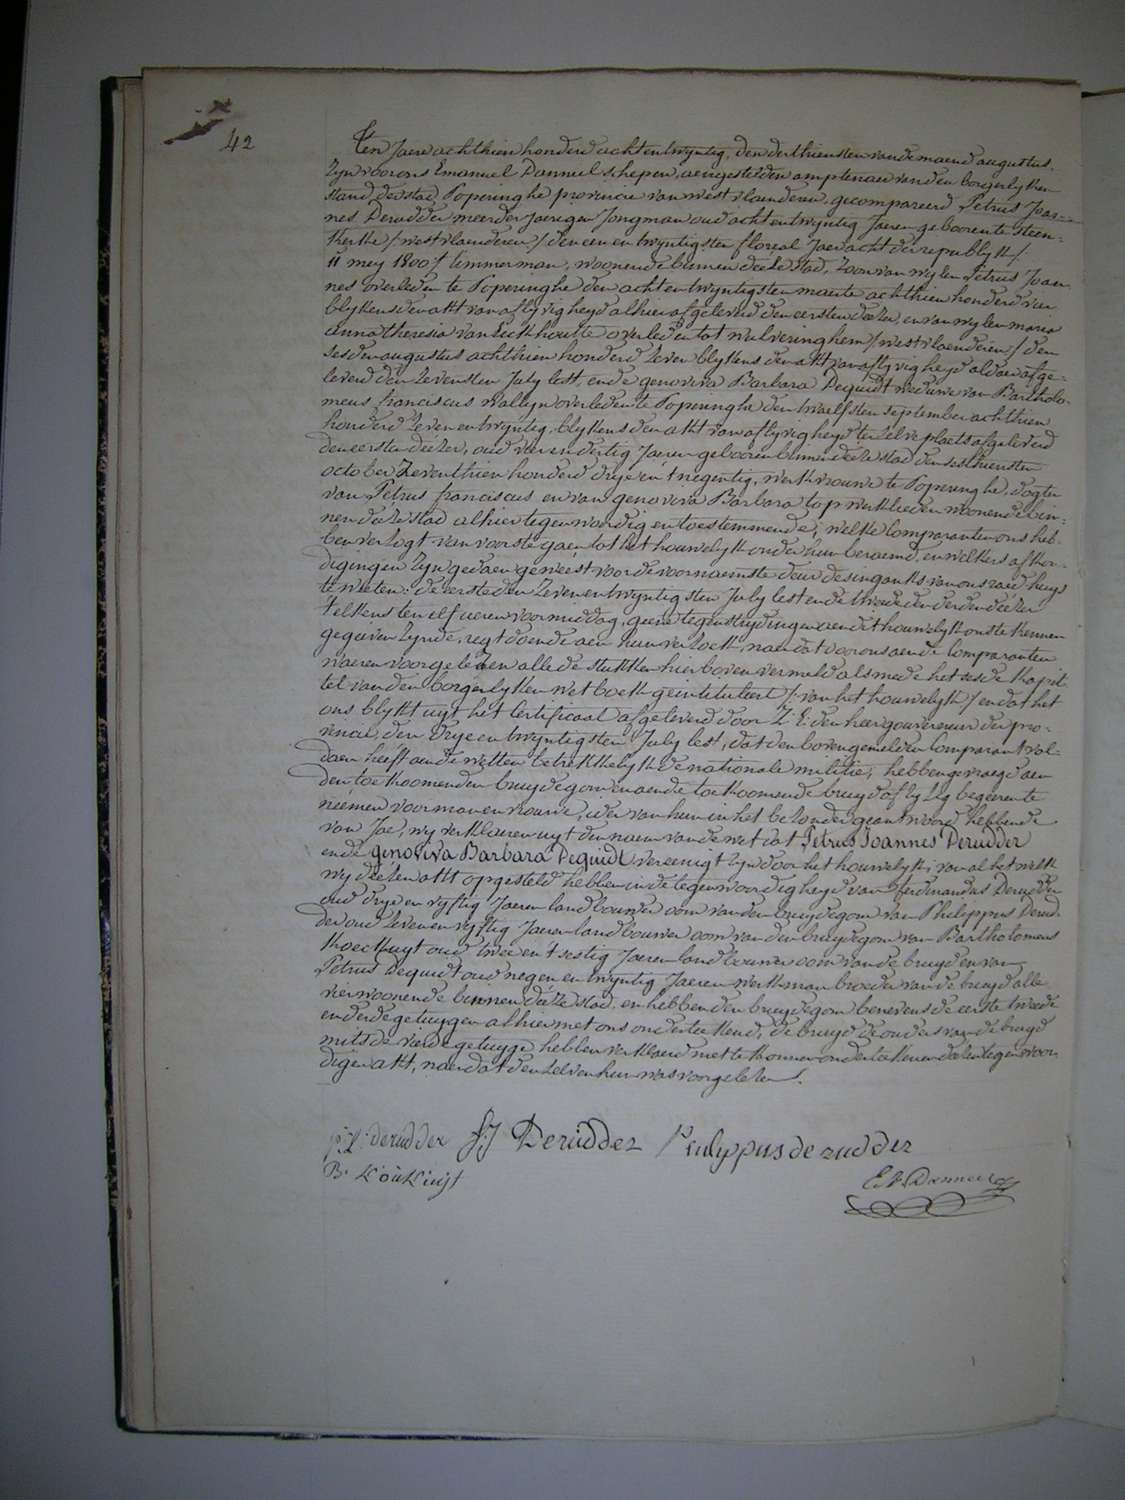 42
Ten Jaere achthien honderd acht en twyntig, den derthiensten van de maend augustus
Zyn voor ons Emanuel Danneel schepen, aengestelden amptenaer van den borgerlyken
stand der stad Poperinghe provincie van westvlaenderen, gecompareerd Petrus Joan-
nes Derudder meerder jaerigen Jongman oud acht en twyntig Jaeren gebooren te Steen-
kerke /westvlaenderen/ den een en twyntigsten floreal Jaer acht der republyk /:
11 mey 1800 / timmerman, woonende binnen deeze stad, Zoon van wylen Petrus Joan-
nes overleden te Poperinghe den acht en twyntigsten maerte achthien honderd
blykens den akt van aflyvigheyd alhier afgeleverd den eersten deezer, en van wylen maria
anna theresia van Eeckhoutte overleden tot wulveringhem /westvlaenderen/ den
sesden augustus achthien honderd Zeven blykens den akt van aflyvigheyd aldaer afge-
leverd den Zevensten July lest, ende genoviva Barbara Dequidt weduwe van Bartholo-
meus franciscus wallyn overleden te Poperinghe den twaelfsten september achthien
honderd Zeven en twyntig, blykens den akt van aflyvigheyd ter Zelve plaets afgeleverd
den eersten deezer, oud vier en dertig Jaeren gebooren binnen deeze stad den sesthiensten
october Zeventhien honderd drye en t negentig, werkvrouwe te Poperinghe, dogter
van Petrus franciscus en van genoviva Barbara top werklieden woonende bin-
nen deeze stad alhier tegenwoordig en toestemmende; welke Comparanten ons heb-
ben verzogt van voorts te gaen tot het houwelyk onder hun beraemd, en welkers afkon-
digingen Zyn gedaen geweest voor de voornaemste deur des ingancks van ons raedhuys
te weeten: de eerste den Zeven en twyntigsten July lest en de tweede den derden deezer
telkens ten elf ueren voormiddag, geene tegenstrydingen aen dit houwelyk ons te kennen
gegeeven Zynde, regt doende aen hun verzoek, naer dat door ons aen de Comparanten
waeren voorgeleZen alle de stukken hier boven vermeld als mede het sesde kapit-
tel van den borgerlyken wetboek geintituleert / van het houwelyk / en dat het
ons blykt uyt het Certificaet afgeleverd door Z: E: den heer gouverneur der pro-
vincie, den drye en twyntigsten July lest, dat den bovengemelden Comparant vol-
daen heeft aen de wetten betrekkelyk de nationale militie; hebben gevraegd aen
den toekoomenden bruydegom en aen de toekoomende bruyd of zy Zig begeeren te
neemen voor man en vrouwe, ider van hun in het bezonder geantwoord hebbende
van Jae, wy verklaeren uyt den naem van de wet dat Petrus Joannes Derudder
ende genoviva Barbara Dequidt vereenigt zyn door het houwelyk; van al het welk
wy deezen akt opgesteld hebben in de tegenwoordigheyd van ferdinandus Derudder
oud drye en vyftig Jaeren landbouwer oom van den bruydegom van Philippus Derud-
der oud Zeven en vyftig Jaeren landbouwer oom van den bruydegom van Bartholomeus
Koeckuyt oud twee en t sestig Jaeren landbouwer oom van de bruyd en van
Petrus Dequidt oud negen en twyntig Jaeren werkman broeder van de bruyd alle
vier woonende binnen deeze stad, en hebben den bruydegom benevens de eerste tweede
en derde getuygen alhier met ons onderteekend, de bruyd de ouders van de bruyd
mits de vierde getuyge hebben verklaerd niet te konnen onderteekenen deezen tegenwoor-
digen akt, naer dat den Zelven hun was voorgelezen.
derudder FJ Derudder Philyppus de rudder
B. Koukuijt E. Danneel